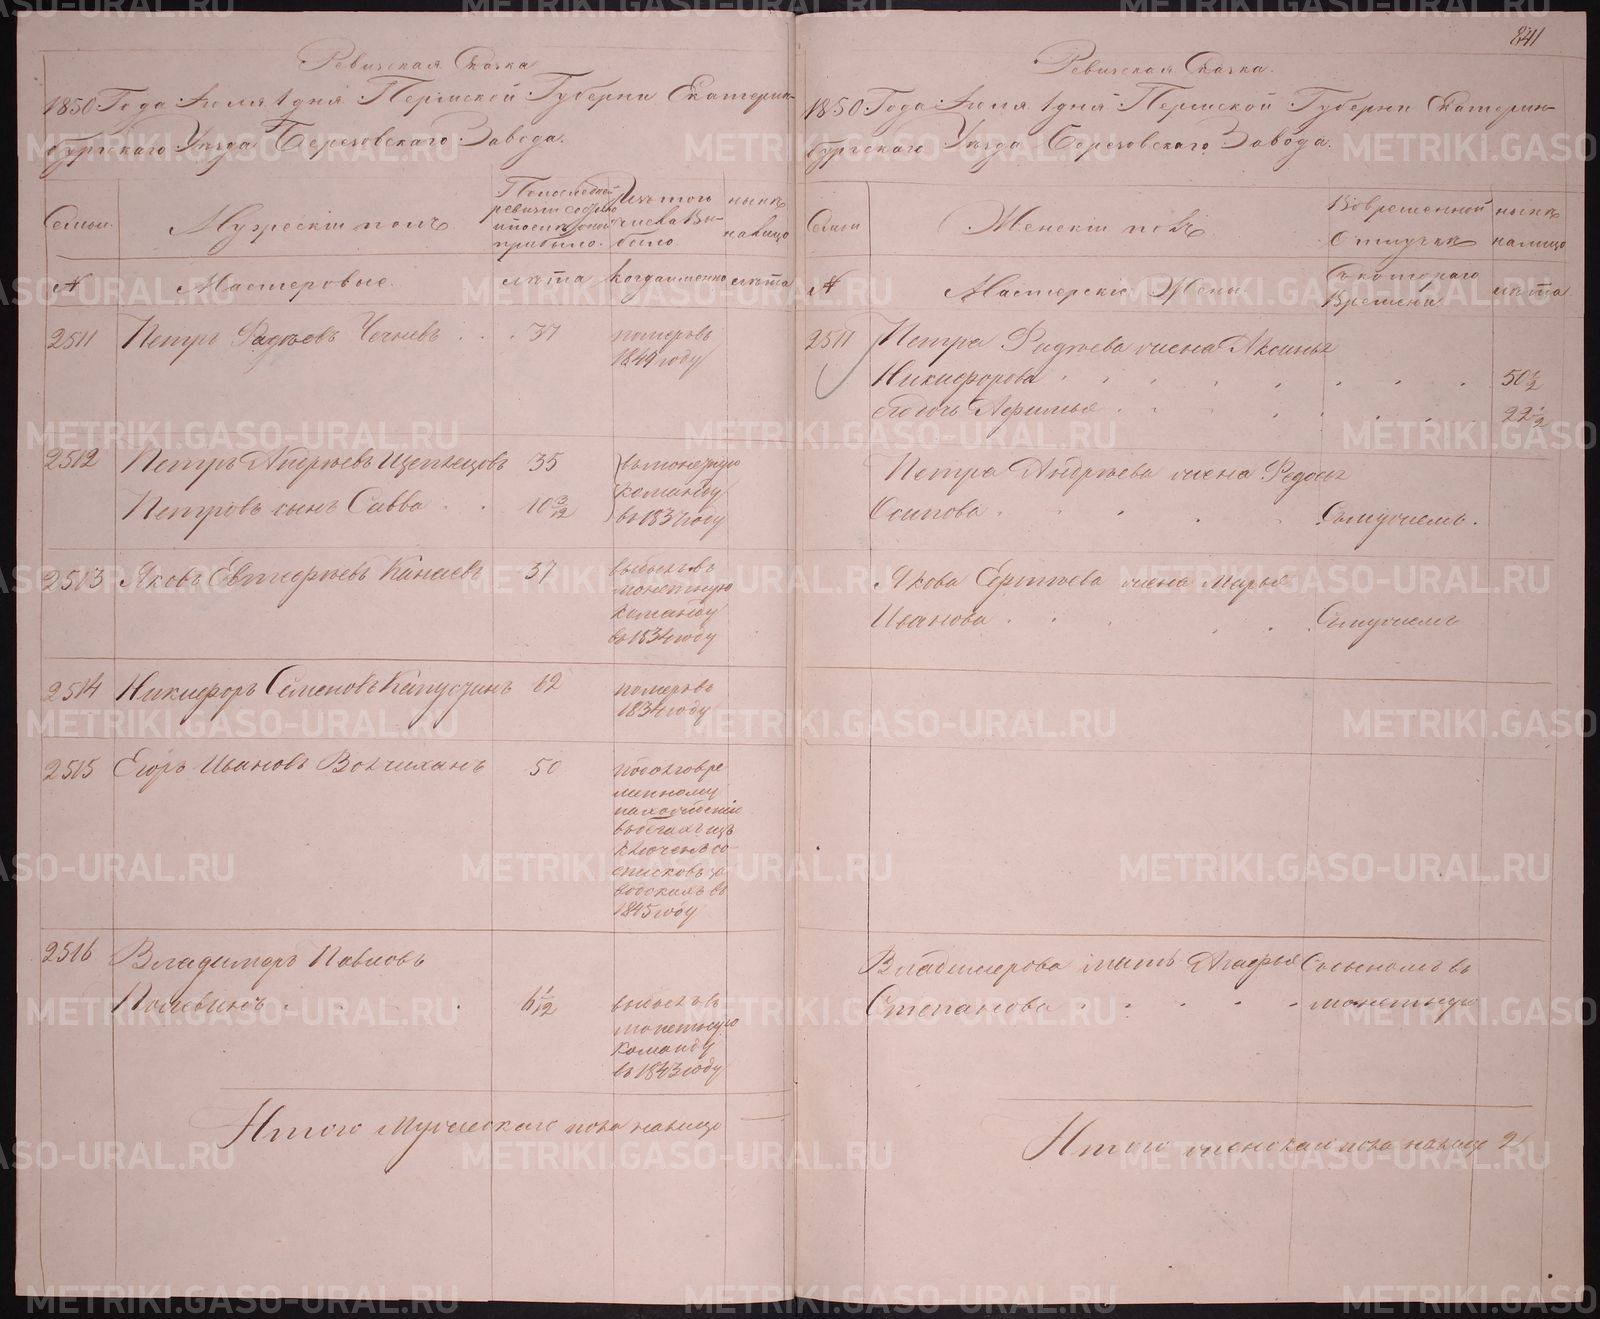 841
Ревижская Сказка
1850 Года Июля 1 дня Пермской Губерни Екатерин-
бургскаго Уезда Березовскаго Завода.
Семьи
Мужескiй полъ
По последней
ревизiи состояло
и после оной
прибыло.
Изъ того
числа вы-
было
ныне
на лицо
№
Мастеровые.
лета
Когда именно
лета
2511
Петръ Фадеевъ
37
померъ въ
1849 году
2512
Петръ Андреевъ
35
въ монетную
команду
въ 1834 году
Петровъ сынъ Савва
10 3/12
2513
Яковъ
Канаевъ
37
выбылъ въ
монетную
команду
въ 1834 году
2514
Никифоръ Семеновъ Капустинъ
62
померъ въ
1834 году
2515
Егоръ Ивановъ Волчихинъ
50
по долговре
менному
нахожденiю
въ бегахъ из
ключенъ со
списковъ за
водскихъ въ
1845 году
2516
Владимиръ Павловъ
Полевинъ
1/12
выбылъ въ
монетную
Команду
въ 1843 году
Итого Мужескаго пола на лицо —
Ревижская Сказка.
1850 Года Июля 1 дня Пермской Губерни Екатерин-
бургскаго Уезда Березовскаго Завода.
Семьи
Женскiй полъ
Во временной
отлучке
ныне
на лицо
№
Мастерскiе Жены
Съ котораго
Времени
лета
2511
Петра Фадеева жена Аксинья
Никифорова
50 1/2
его дочь Афимья
22 1/2
Петра Андреева жена Федосья
Осипова
Съ мужемъ.
Якова
жена Марья
Иванова
Съ мужемъ
Владимерова мать Агафья
Съ сыномъ въ
Степанова
монетную
Итого женскаго пола на лицо 2
METRIKI.GASO-URAL.RU